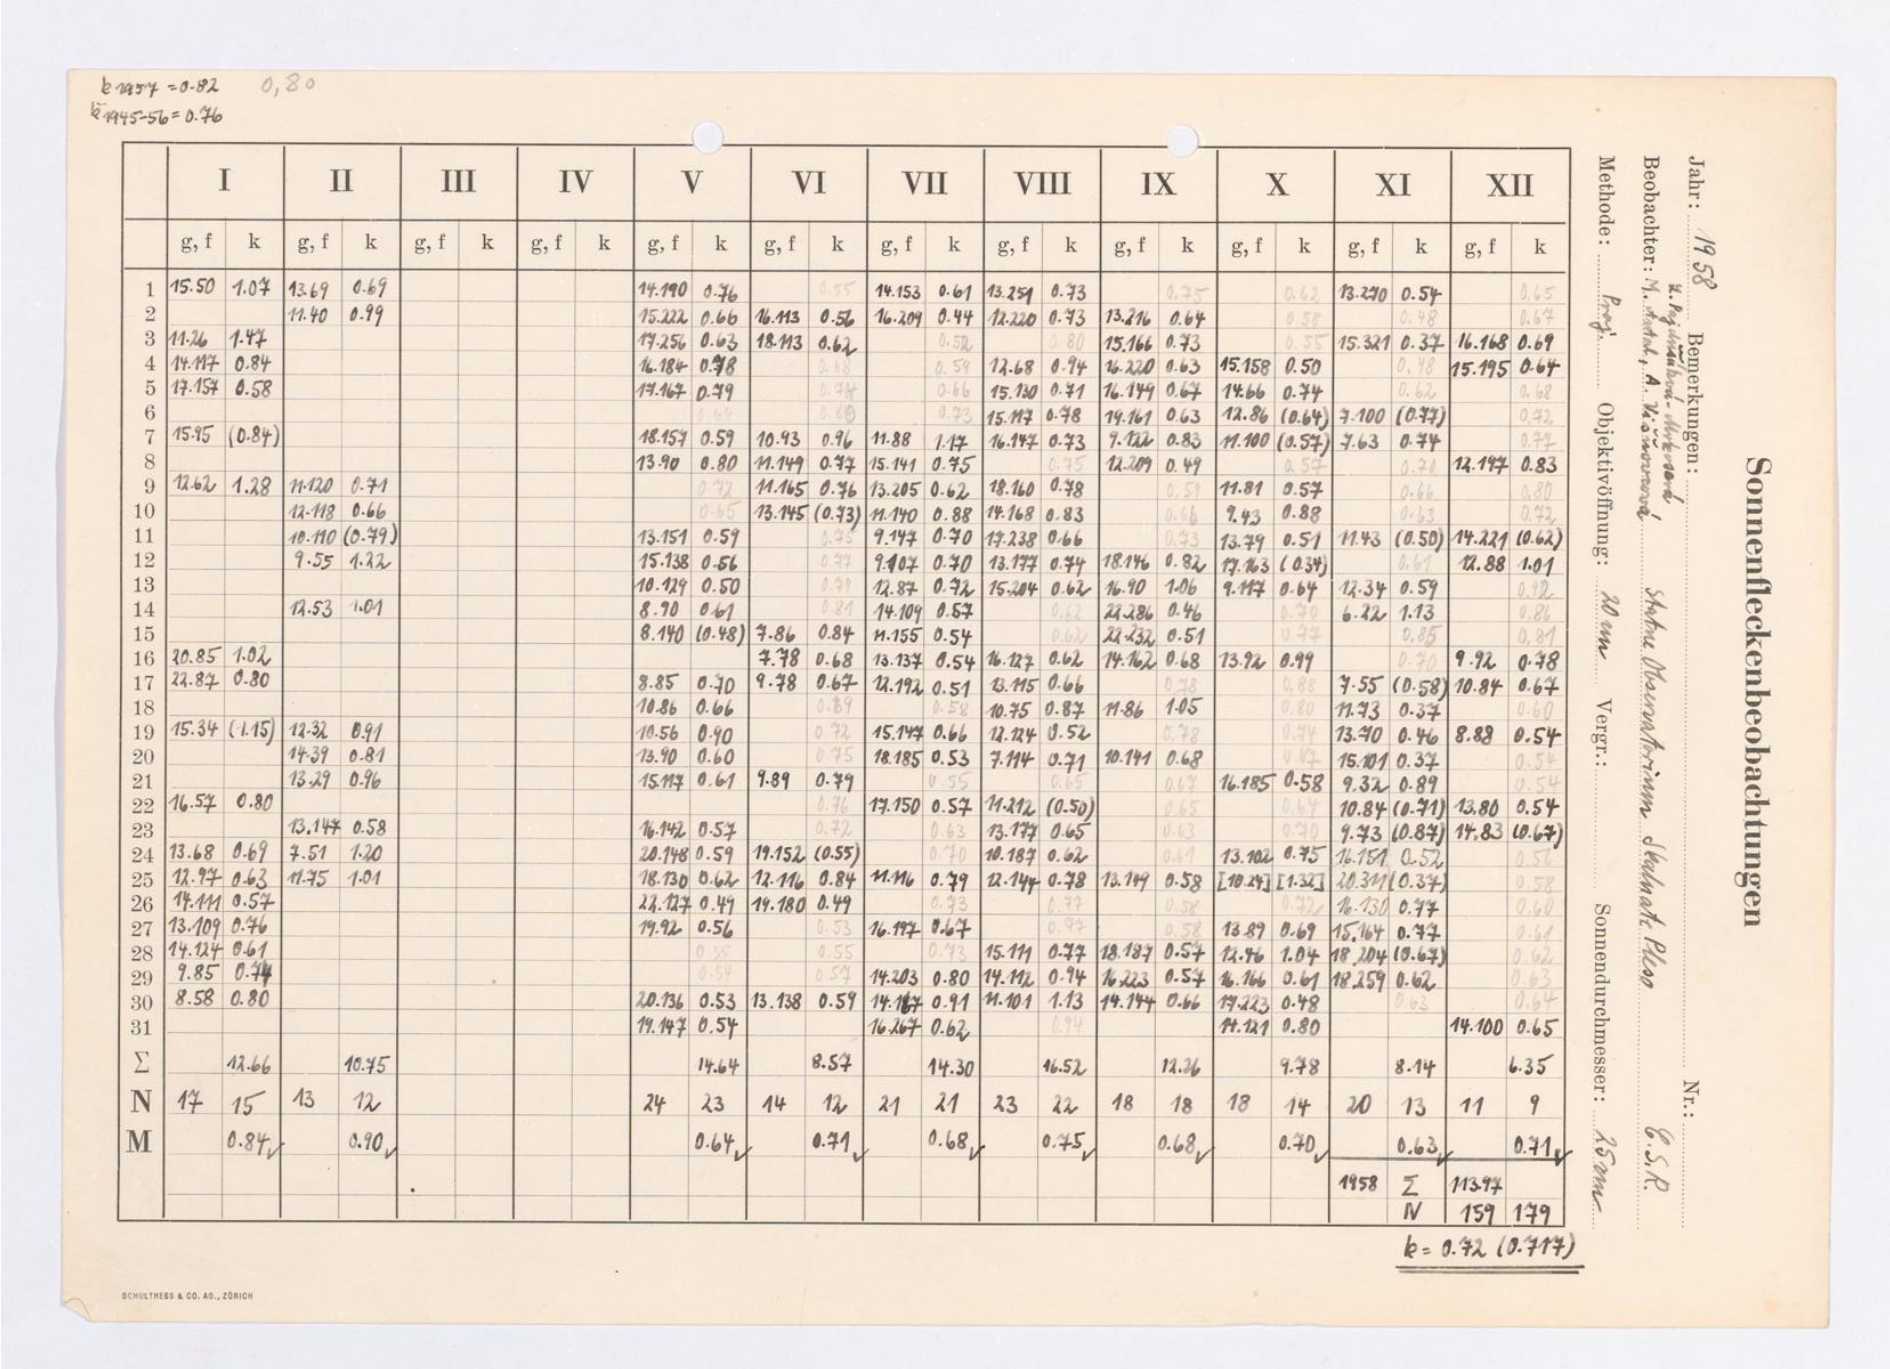 k 1957 = 0.82 0,80
k 1945-56 = 0.76
Sonnenfleckenbeobachtungen
Jahr: 1958 Bemerkungen: Nr.:
Beobachter: M. A. Státne Observatórium Skalnaté Pleso Č.S.R.
Methode: Proj. Objektivöffnung: 20 cm Vergr.: Sonnendurchmesser: 25 cm
I II III IV V VI VII VIII IX X XI XII
g, f k g, f k g, f k g, f k g, f k g, f k g, f k g, f k g, f k g, f k g, f k g, f k
1 15.50 1.07 13.69 0.69 14.190 0.76 0.55 14.153 0.61 13.251 0.73 0.75 0.62 13.270 0.54 0.65
2 11.40 0.99 15.222 0.66 16.113 0.56 16.209 0.44 12.220 0.73 13.216 0.64 0.58 0.48 0.67
3 11.26 1.47 17.256 0.63 18.113 0.62 0.52 0.80 15.166 0.73 0.55 15.321 0.37 16.168 0.69
4 14.117 0.84 16.184 0.78 0.68 0.59 12.68 0.94 16.220 0.63 15.158 0.50 0.48 15.195 0.64
5 17.157 0.58 17.167 0.79 0.66 15.130 0.71 16.149 0.67 14.66 0.74 0.62 0.68
6 0.69 0.73 15.117 0.78 19.161 0.63 12.86 (0.64) 7.100 (0.77) 0.72
7 15.95 (0.84) 18.157 0.59 10.93 0.96 11.88 1.17 16.147 0.73 9.122 0.83 11.100 (0.57) 7.63 0.74 0.77
8 13.90 0.80 11.149 0.77 15.141 0.75 0.75 12.209 0.49 0.57 0.70 12.197 0.83
9 12.62 1.28 11.120 0.71 0.72 11.165 0.76 13.205 0.62 18.160 0.78 0.59 11.81 0.57 0.66 0.80
10 12.118 0.66 0.65 13.145 (0.73) 11.140 0.88 14.168 0.83 0.66 9.43 0.88 0.63 0.72
11 10.110 (0.79) 13.151 0.59 0.75 9.147 0.70 17.238 0.66 0.73 13.79 0.51 11.43 (0.50) 14.221 (0.62)
12 9.55 1.22 15.138 0.56 0.77 9.107 0.70 13.177 0.74 18.146 0.82 17.163 (0.34) 0.61 12.88 1.01
13 10.129 0.50 0.79 12.87 0.72 15.204 0.62 16.90 1.06 9.117 0.64 12.34 0.59 0.92
14 12.53 1.01 8.70 0.61 0.81 14.109 0.57 0.62 22.286 0.46 0.70 6.22 1.13 0.86
15 8.140 (0.48) 7.86 0.84 11.155 0.54 0.62 22.232 0.51 0.77 0.85 0.81
16 20.85 1.02 7.78 0.68 13.137 0.54 16.127 0.62 14.162 0.68 13.92 0.99 0.70 9.92 0.78
17 22.87 0.80 8.85 0.70 9.78 0.67 12.192 0.51 13.115 0.66 0.78 0.88 7.55 (0.58) 10.84 0.67
18 10.86 0.66 0.69 0.58 10.75 0.87 11.86 1.05 0.80 11.73 0.37 0.60
19 15.34 (1.15) 12.32 0.91 10.56 0.90 0.72 15.147 0.66 12.124 0.52 0.78 0.74 13.70 0.46 8.88 0.54
20 14.39 0.81 13.90 0.60 0.75 18.185 0.53 7.114 0.71 10.141 0.68 15.101 0.37 0.54
21 13.29 0.96 15.117 0.61 9.89 0.79 0.55 0.65 0.67 16.185 0.58 9.32 0.89 0.54
22 16.57 0.80 0.76 17.150 0.57 11.212 (0.50) 0.65 0.64 10.84 (0.71) 13.80 0.54
23 13.147 0.58 16.142 0.57 0.72 0.63 13.177 0.65 0.63 0.70 9.73 (0.87) 14.83 (0.67)
24 13.68 0.69 7.51 1.20 20.148 0.59 19.152 (0.55) 0.70 10.187 0.62 0.61 13.102 0.75 16.151 0.52 0.56
25 12.97 0.63 11.75 1.01 18.130 0.62 12.116 0.84 11.116 0.79 12.144 0.78 13.149 0.58 [10.24] [1.32] 20.311 (0.37) 0.58
26 14.111 0.57 22.127 0.49 19.180 0.49 0.73 0.77 0.58 0.72 16.130 0.77 0.60
27 13.109 0.76 19.92 0.56 0.53 16.197 0.67 0.77 0.58 13.89 0.69 15.164 0.77 0.61
28 14.124 0.61 0.55 0.55 0.73 15.111 0.77 18.187 0.57 12.46 1.04 18.204 (0.67) 0.62
29 9.85 0.74 0.54 0.57 14.203 0.80 14.112 0.94 16.223 0.57 16.166 0.61 18.259 0.62 0.63
30 8.58 0.80 20.136 0.53 13.138 0.59 14.167 0.91 11.101 1.13 14.144 0.66 17.223 0.48 0.63 0.64
31 19.147 0.54 16.267 0.62 0.94 14.121 0.80 14.100 0.65
Σ 12.66 10.75 14.64 8.57 14.30 16.52 12.26 9.78 8.14 6.35
N 17 15 13 12 24 23 14 12 21 21 23 22 18 18 18 14 20 13 11 9
M 0.84 0.90 0.64 0.71 0.68 0.75 0.68 0.70 0.63 0.71
1958 Σ 113.97
N 159 179
k = 0.72 (0.717)
SCHULTHESS & CO. AG., ZÜRICH